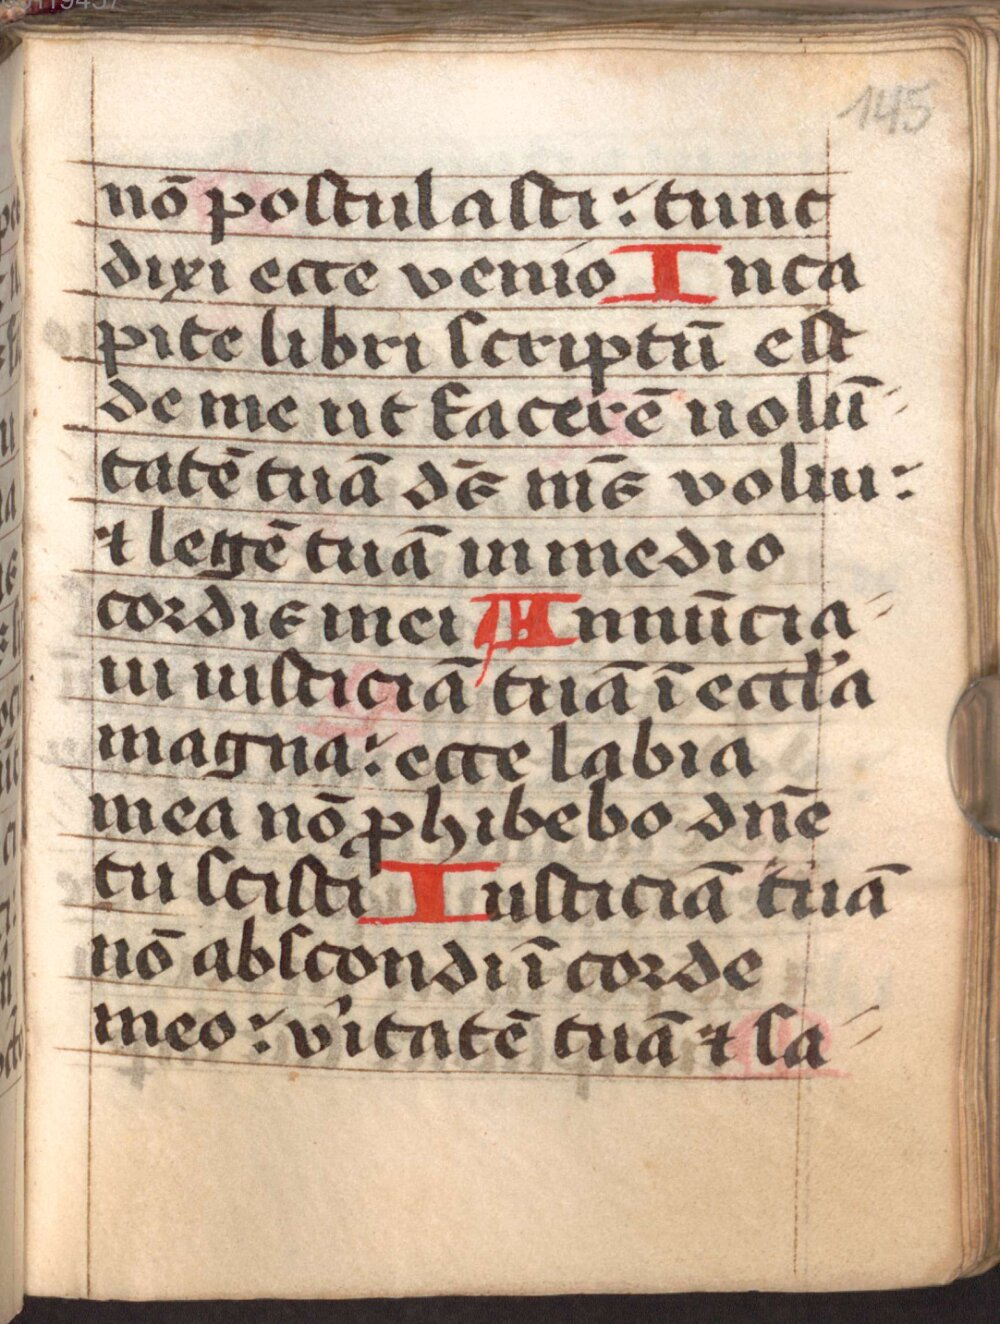 145
nō postulasti: tunc
dixi ecce venio In ca
pite libri scriptū est
de me ut facerē uolū
tatē tuā dẽs mẽs volui:
⁊ legē tuā in medio
cordis mei Annūcia
ui iusticiā tuā ī eccl'a
magna: ecce labia
mea nō ꝓhibebo dn̄e
tu scisti Iusticiā tuā
nō abscondi ī corde
meo: v'itatē tuā ⁊ sa